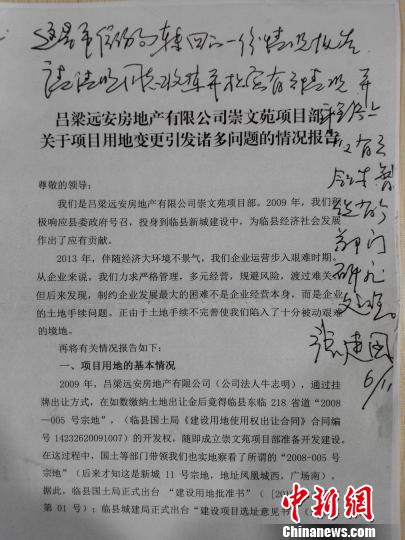 吕梁远安房地产有限公司崇文苑项目部
关于项目用地变更引发诸多问题的情况报告
尊敬的领导：
我们是吕梁远安房地产有限公司崇文苑项目部。2009年，我们积
极响应县委政府号召，投身到临县新城建设中，为临县经济社会发展
作出了应有贡献。
2013年，伴随经济大环境不景气，我们企业运营步入艰难时期。
从企业来说，我们力求严格管理，多元经营，规避风险，渡过难关
但后来发现，制约企业发展最大的困难不是企业经营本身，而是企业
的土地手续问题。正由于土地手续不完善使我们陷入了十分被动艰难
的境地。
再将有关情况报告如下：
一、项目用地的基本情况
2009年，吕梁远安房地产有限公司（公司法人牛志明），通过挂
牌出让方式，在如数缴纳土地出让金后竞得临县东临218省道“2008
—005号宗地”，（临县国土局《建设用地使用权出让合同》合同编
号14232620091007）的开发权，随即成立崇文苑项目部准备开发建设。
在这过程中，国土等部门带领我们也实地察看了所谓的“2008-005号
宗地”（后来才知这是新城11号宗地，地址凤凰城西，广场南），
据此，临县国土局正式出台“建设用地批准书”（[20
第01号）；临县城建局正式出台“建设项目选址意见书”（
张建国
6/11
中新网
www.chinanews.com